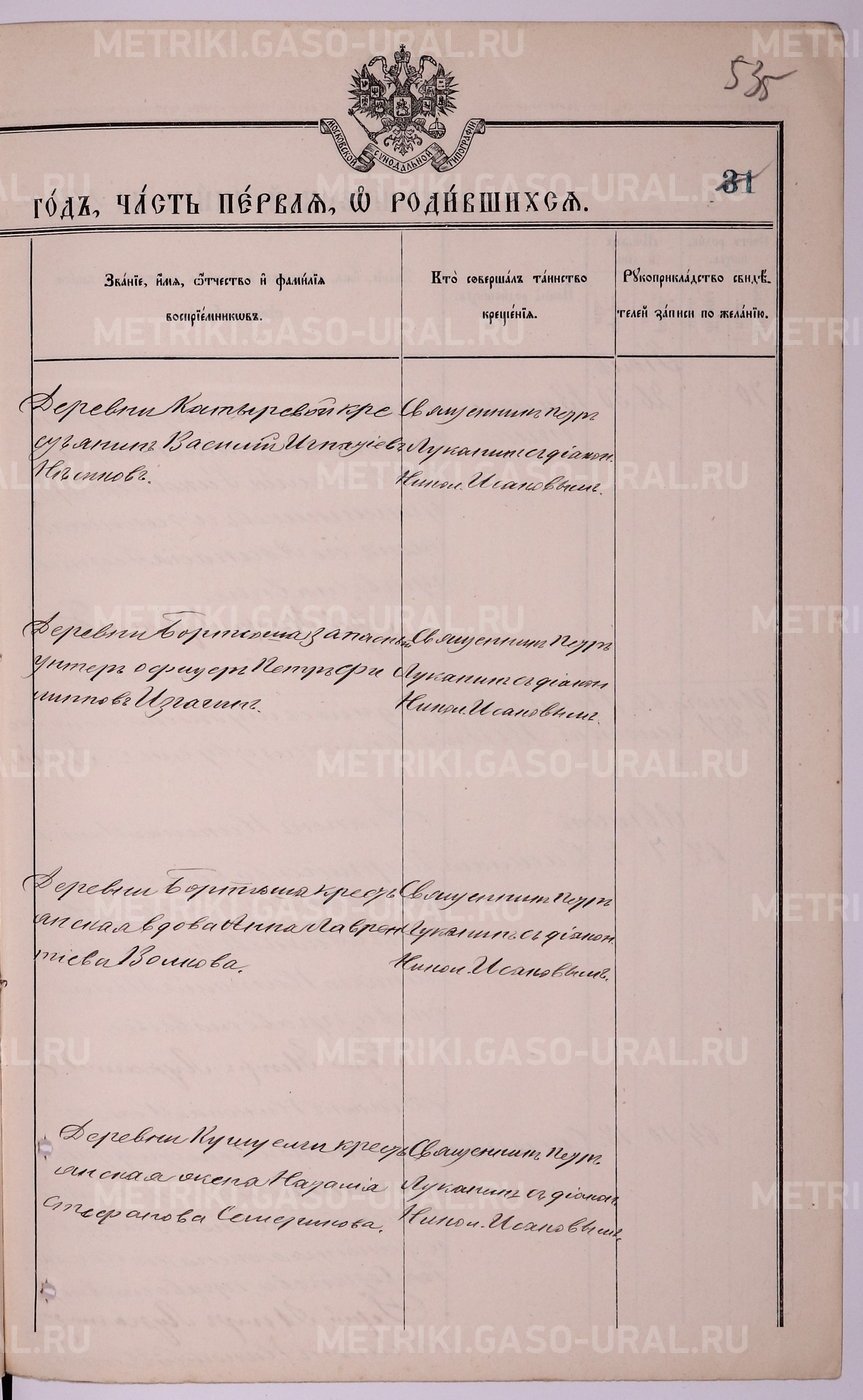 535
МОСКОВСКОЙ СѴНОДАЛЬНОЙ ТИПОГРАФІИ
31
ГО́ДЪ, ЧА́СТЬ ПЕ́РВАЯ, Ѽ РОДИ́ВШИХСЯ.
Зва́нїе, и҆́мя, ѻ҆́тчество и҆ фами́лїя
воспрїе́мникωвъ.
Кто̀ соверша́лъ та́инство
креще́нїя.
Рꙋкоприкла́дство свидѣ́-
телей за́писи по жела́нїю.
Деревни Катыревой кре
стьянинъ Василій Игнатіевъ
Священникъ Петръ
Луканинъ съ діакон.
Никол. Исаковымъ.
Деревни Бортѣша запасный
унтеръ офицеръ Петръ Фи
липповъ Изгагинъ.
Священникъ Петръ
Луканинъ съ діакон
Никол. Исаковымъ.
Деревни Бортѣша кресть
янская вдова Анна Лаврен
тіева Волкова.
Священникъ Петръ
Луканинъ съ діакон
Никол. Исаковымъ.
Деревни Кушуелги кресть
янская жена Наталія
Стефанова Семерикова.
Священникъ Петръ
Луканинъ съ діакон.
Никол. Исаковымъ.
METRIKI.GASO-URAL.RU